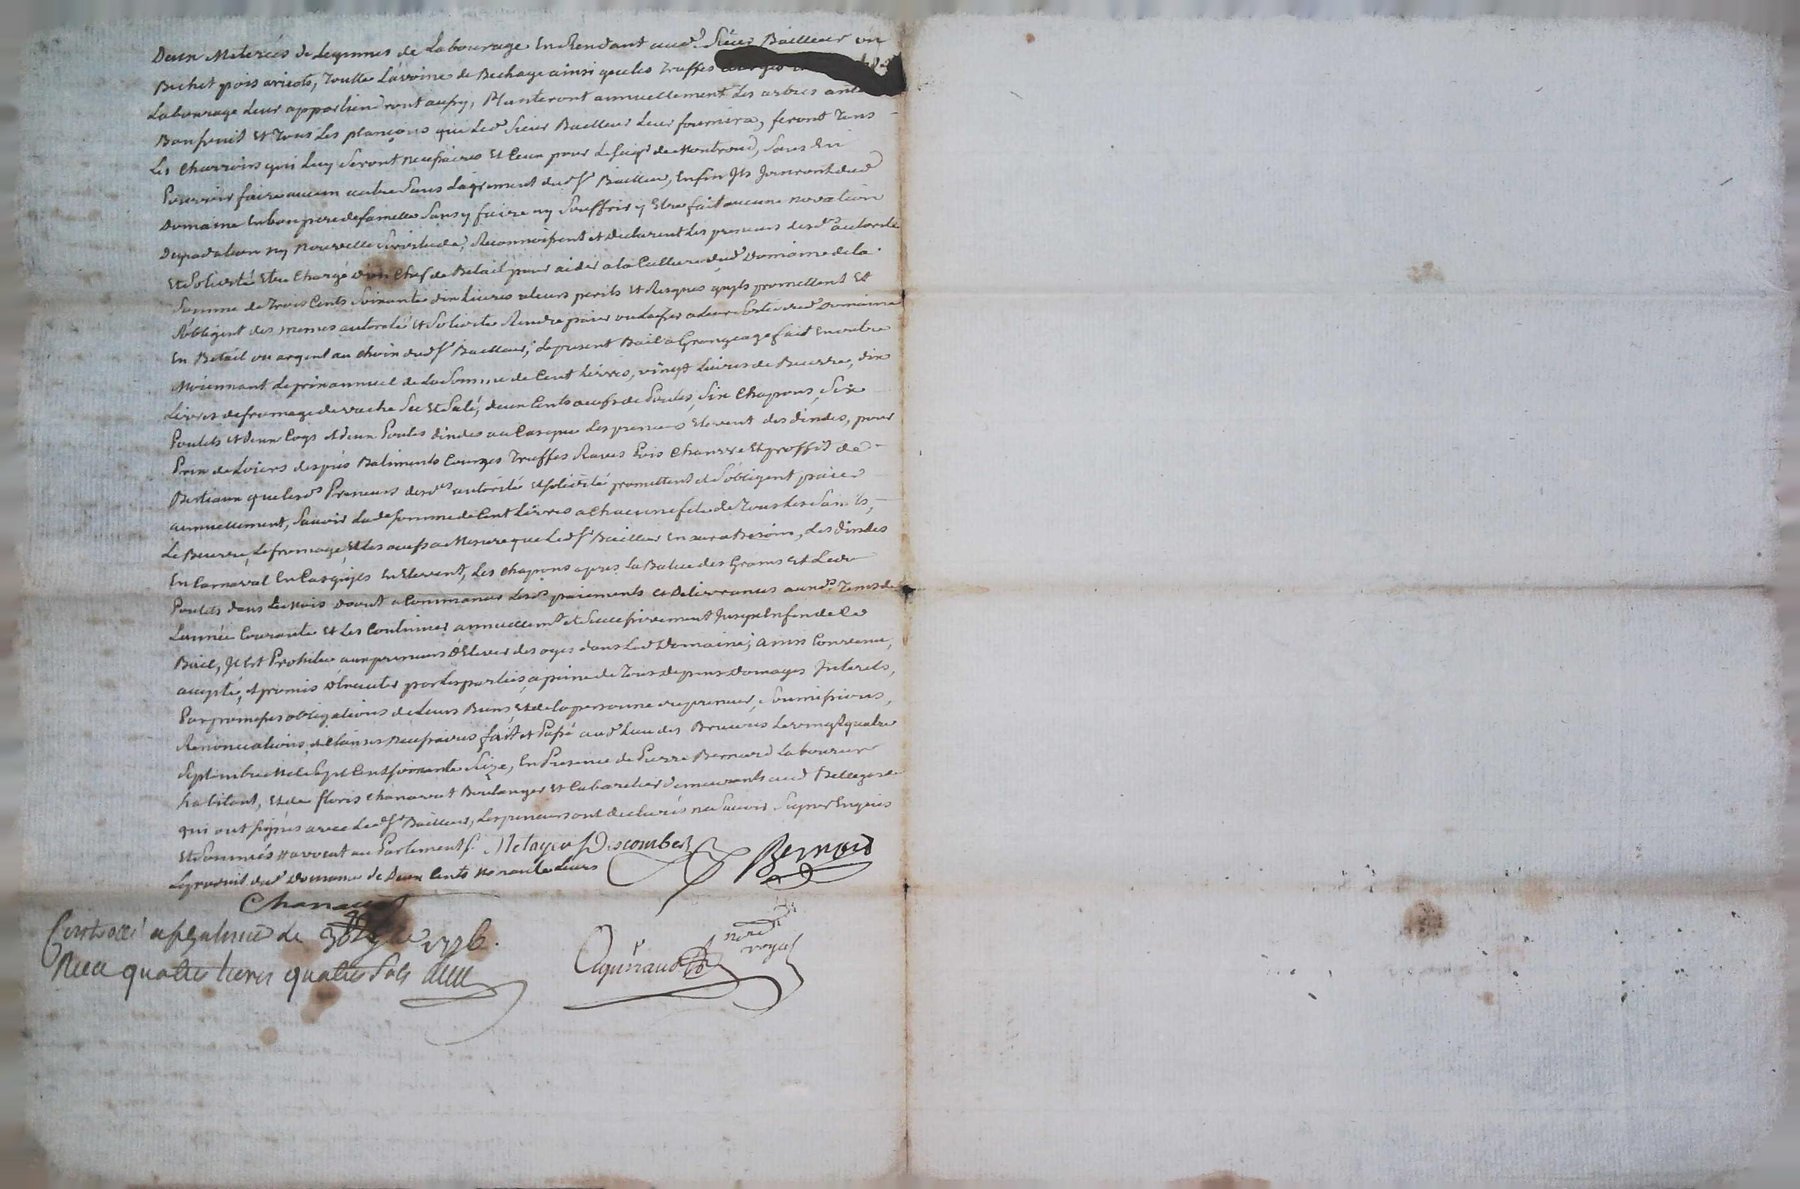 Deux Meterées de Legumes de Labourage En Rendant aud. Sieur Bailleur un
Bichet pois aricots, Toutte L'avoine de Bechage ainsi que les Truffes
Labourage Leur appartiendront aussy, Planteront annuellement des arbres
Bonfruit Et Tous les plançons que Led. Sieur Bailleur Leur fournira, feront Tous
Les Charroirs qui Luy Seront necessaires Et Ceux pour Le de Montrond, Sans En
Pouvoir faire aucun autre Sans L'agrement dud. Sr. Bailleur, Enfin Ils Jouiront dud.
Domaine En bon pere de famille Sans y faire ny Souffrir y Etre fait aucune novation
Degradation ny Nouvelle Servitude, Reconnoissent et Declarent Les preneurs desd. autorité
Et Solidité Etre Chargé d'un Chef de Betail pour aider a la Culture dud. Domaine de la
Somme de Trois Cents Soixante dix Livres a leurs perils Et Risques qu'ils promettent Et
S'obligent des memes autorité et Solidité Rendre paier ou Laisser a Leur Sortie dud. Domaine
En Betail ou argent au choix dud. Sr. Bailleur, Le present Bail a Grangeage fait En outre
Moiennant Le prix annuel de La Somme de Cent Livres, vingt Livres de Beurre, dix
Livres de fromage de vache Sec Et Salé, deux Cents oeufs de Poules, Six Chapons, Six
Poulets et deux Coqs et deux Poules dindes au Cas que Les preneurs Elevent des dindes, pour
Prix de Loiers des prés Batiments Courges Truffes Raves Pois Chanvre Et proffit de
Bestiaux que lesd. Preneurs desd. autorité et solidité promettent et S'obligent paier
annuellement, Savoir Lad. Somme de Cent Livres a Chacune fete de Tous Les Saints,
Le Beurre, Le fromage, Et Les oeufs a Mesure que Led. Sr. Bailleur En aura Besoin, Les dindes
En Carnaval En Cas qu'ils En Elevent, Les chapons apres La Batue des Grains Et Lesd.
Poulets dans Le Mois d'aout a Commancer Lesd. paiements Et Delivrances auxd. Tems de
L'année Courante Et Les Continuer annuellemt. et Successivement Jusqu'En fin de Ce
Bail, Il Est Prohibé aux preneurs d'Elever des oyes dans Led. Domaine; ainsi Convenu,
accepté, et promis Executer par Les parties, a peine de Tous depens Domages Interets,
Par promesses obligations de Leurs Biens Et de la personne du preneur, Soumissions,
Renonciations et Clauses Necessaires fait et Passé aud. Lieu des Bruieres Le vingt quatre
Septembre Mil Sept Cent Soixante Seize, En Presence de Pierre Bernard Laboureur
habitant, Et de floris Chanavat Boulanger Et Cabaretier demeurants aud. Bellegarde
qui ont signés avec Led. Sr. Bailleur, Les preneurs ont declarés ne Savoir Signer Enquis
Et Sommés avocat au Parlement. Descombes Bernard
Le produit dud. Domaine de Deux Cents
Chanavat
Controllé a St galmier le 1776.
Reçu quatre livres quatre sols
nore. royal